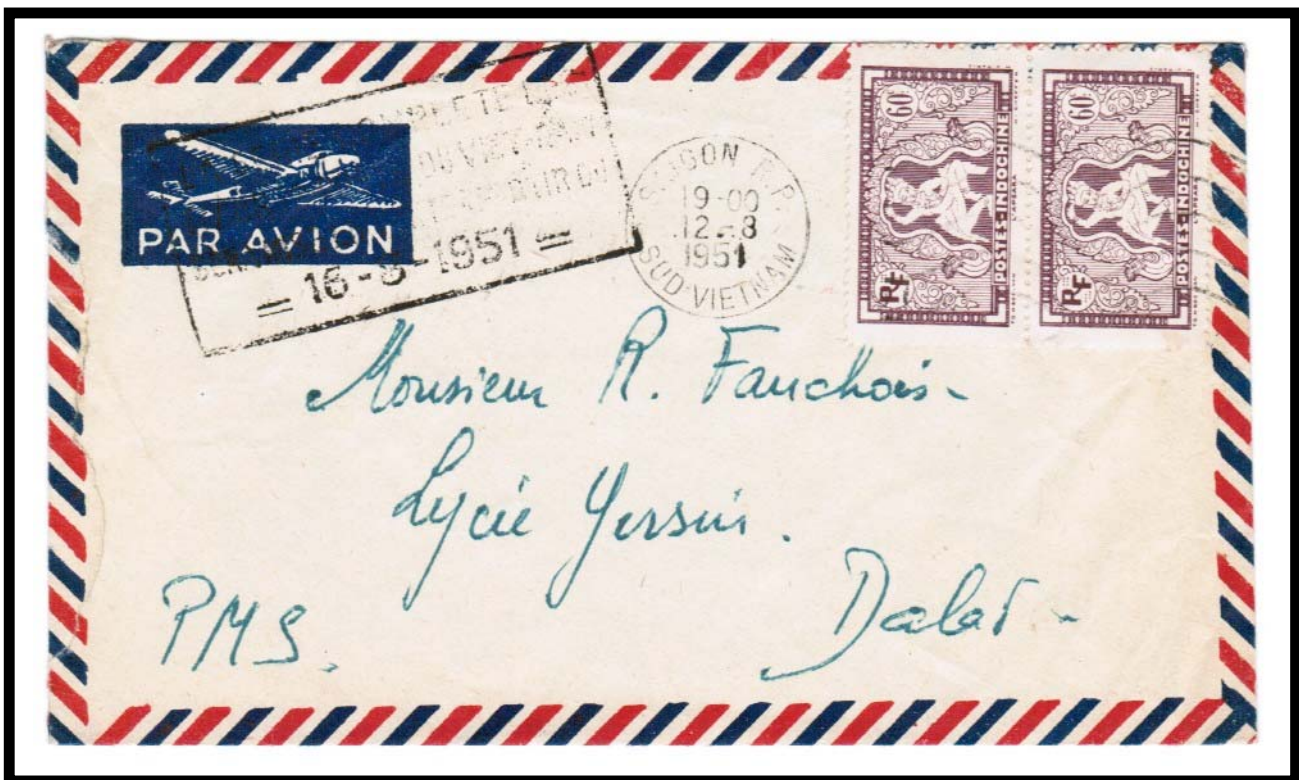 PAR AVION
DU VIET-NAM
= 16-8-1951 =
SAIGON R.P.
19-00
12-8
1951
SUD-VIETNAM
60
POSTES-INDOCHINE
RF
60
POSTES-INDOCHINE
RF
Monsieur R. Fauchois-
Lycée Yersin.
Dalat-
PMS.